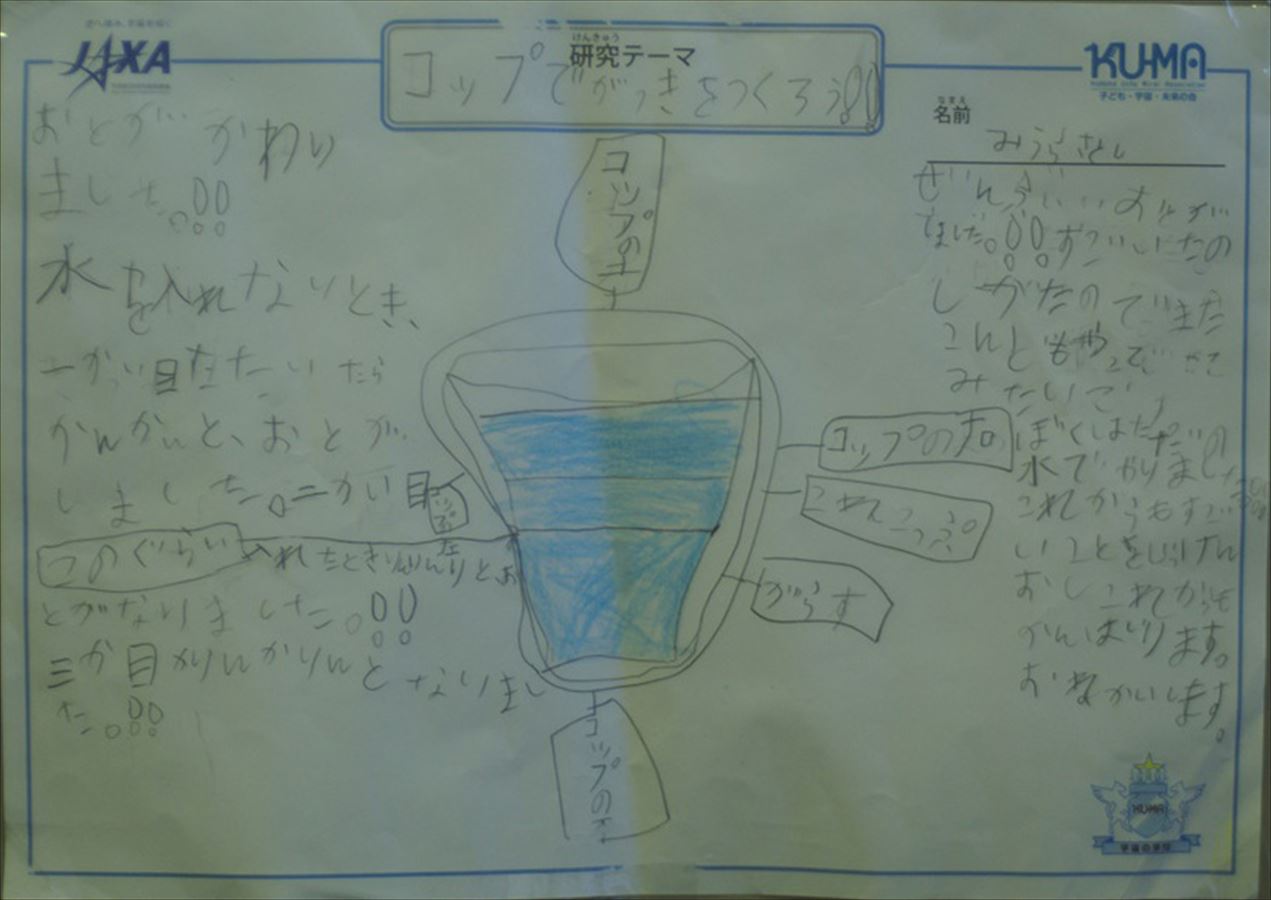 空へ挑み、宇宙を拓く
JAXA
けんきゅう
研究テーマ
コップでがっきをつくろう!!
KU-MA
子ども・宇宙・未来の会
なまえ
名前
みうら さとし
おとが かわり
ました。!!
水を入れないとき、
一かい目たたいたら
かんかんと、おとが
しました。二かい目
このぐらい入れたときりんりんとお
とがなりました。!!
三か目かりんかりんとなりまし
た。!!
コップの上
コップの右
これんこっぷ
がらす
コップの下
ぜんぶいいおとが
でました。!!すごいいたの
しかたのでまた
こんともやって
みたいで
ぼくはただの
水でやりました
これからもすご
いことをじっけん
おしこれからも
がんばります。
おねがいします。
KUMA
宇宙の学校